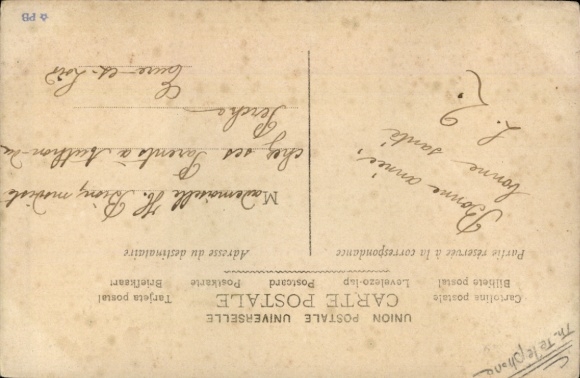 UNION POSTALE UNIVERSELLE
CARTE POSTALE
Cartolina postale Levelezo-lap Postcard Postkarte Tarjeta postal
Bilhete postal Briefkaart
Partie réservée à la correspondance
Adresse du destinataire
Bonne année,
bonne santé
L. P.
Mademoiselle H. modiste
chez ses Parents à Authon-du
Perche
Eure-et-Loir
Th. Telephone
PB